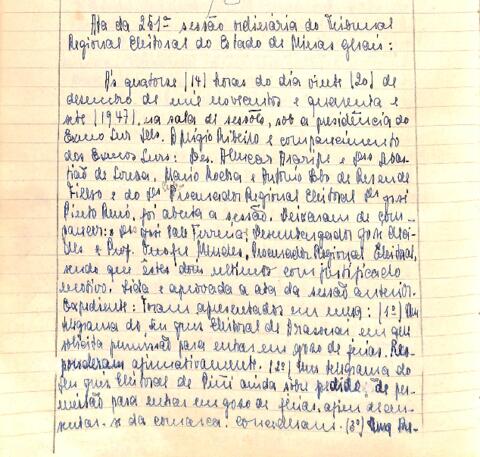 Ata da 251ª sessão ordinária do Tribunal
Regional Eleitoral do Estado de Minas Gerais:
Às quatorze (14) horas do dia vinte (20) de
dezembro de mil novecentos e quarenta e
sete (1947), na sala de sessões, sob a presidência do
Exmo Snr Des. Aprigio Ribeiro e comparecimento
dos Exmos Snrs: Des. Alencar Araripe e
de Sousa, Mario Rocha e Antônio Lobo de Resende
Filho e do Procurador Regional Eleitoral José
Pinto Renó, foi aberta a sessão. Deixaram de com-
parecer: José Ferreira, Desembargador José
e Prof. Onofre Mendes, Procurador Regional Eleitoral,
sendo que estes dois ultimos com justificado
motivo. Lida e aprovada a ata da sessão anterior.
Expediente: Foram apresentados em mesa: (1º) Um
telegrama do Snr Juiz Eleitoral de em que
solicita permissão para entrar em goso de ferias. Res-
ponderam afirmativamente. (2º) Um telegrama do
Snr Juiz Eleitoral de ainda sobre pedido de per-
missão para entrar em goso de ferias, afim de
da comarca. Concederam. (3º) Um